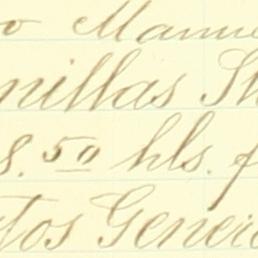 o Manue
nillas Sh
8.50 hls. f
tos Gener